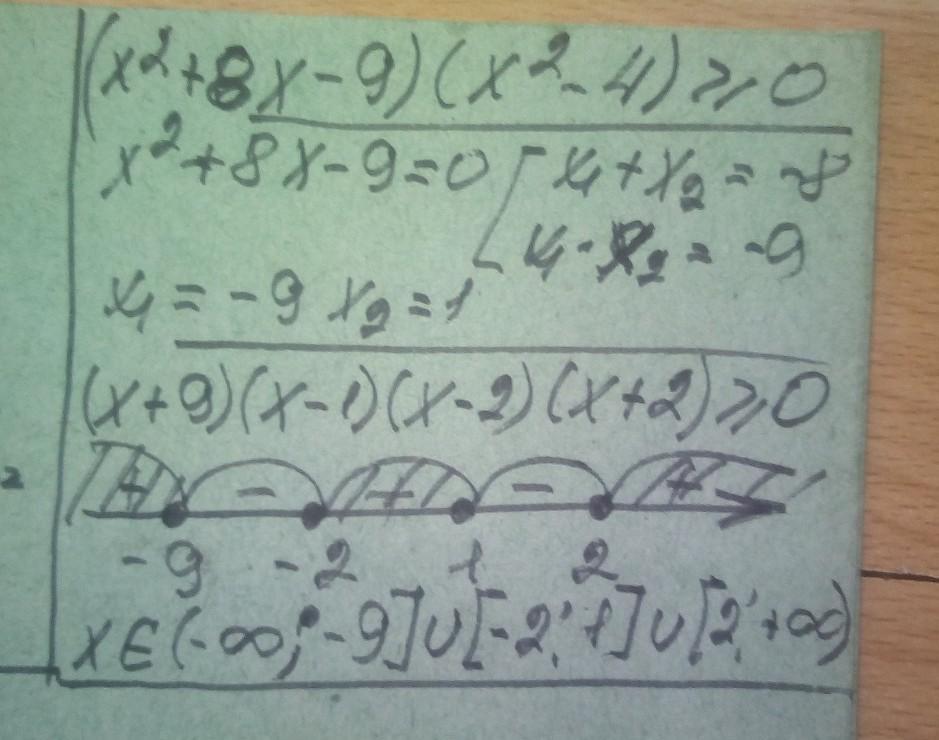 (x²+8x-9)(x²-4)⩾0
x²+8x-9=0 [ x₁+x₂=-8
x₁·x₂=-9
x₁=-9 x₂=1
(x+9)(x-1)(x-2)(x+2)⩾0
+ - + - +
2
-9 -2 1 2
x∈(-∞;-9]∪[-2;1]∪[2;+∞)